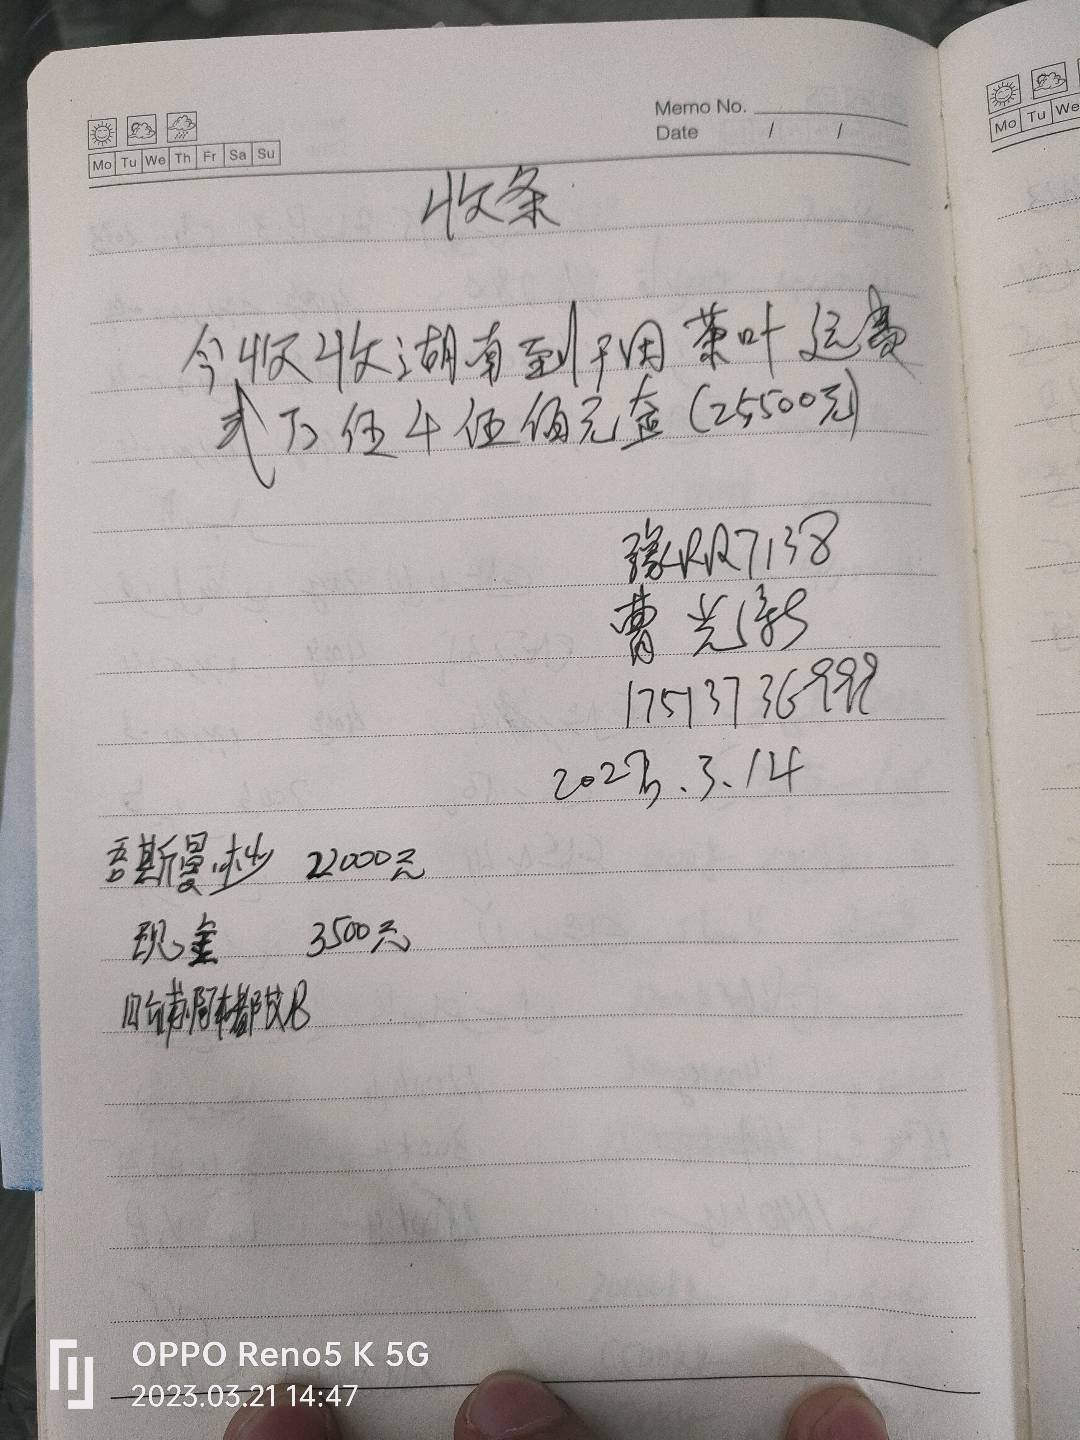 Memo No.
Date / /
Mo Tu We Th Fr Sa Su
Mo Tu We
收条
今收收湖南到和田茶叶运费
弍万伍千伍佰元金(25500元)
豫RR7138
曹光新
17513736999
2023.3.14
吾斯曼.吐 22000元
现金 3500元
OPPO Reno5 K 5G
2023.03.21 14:47